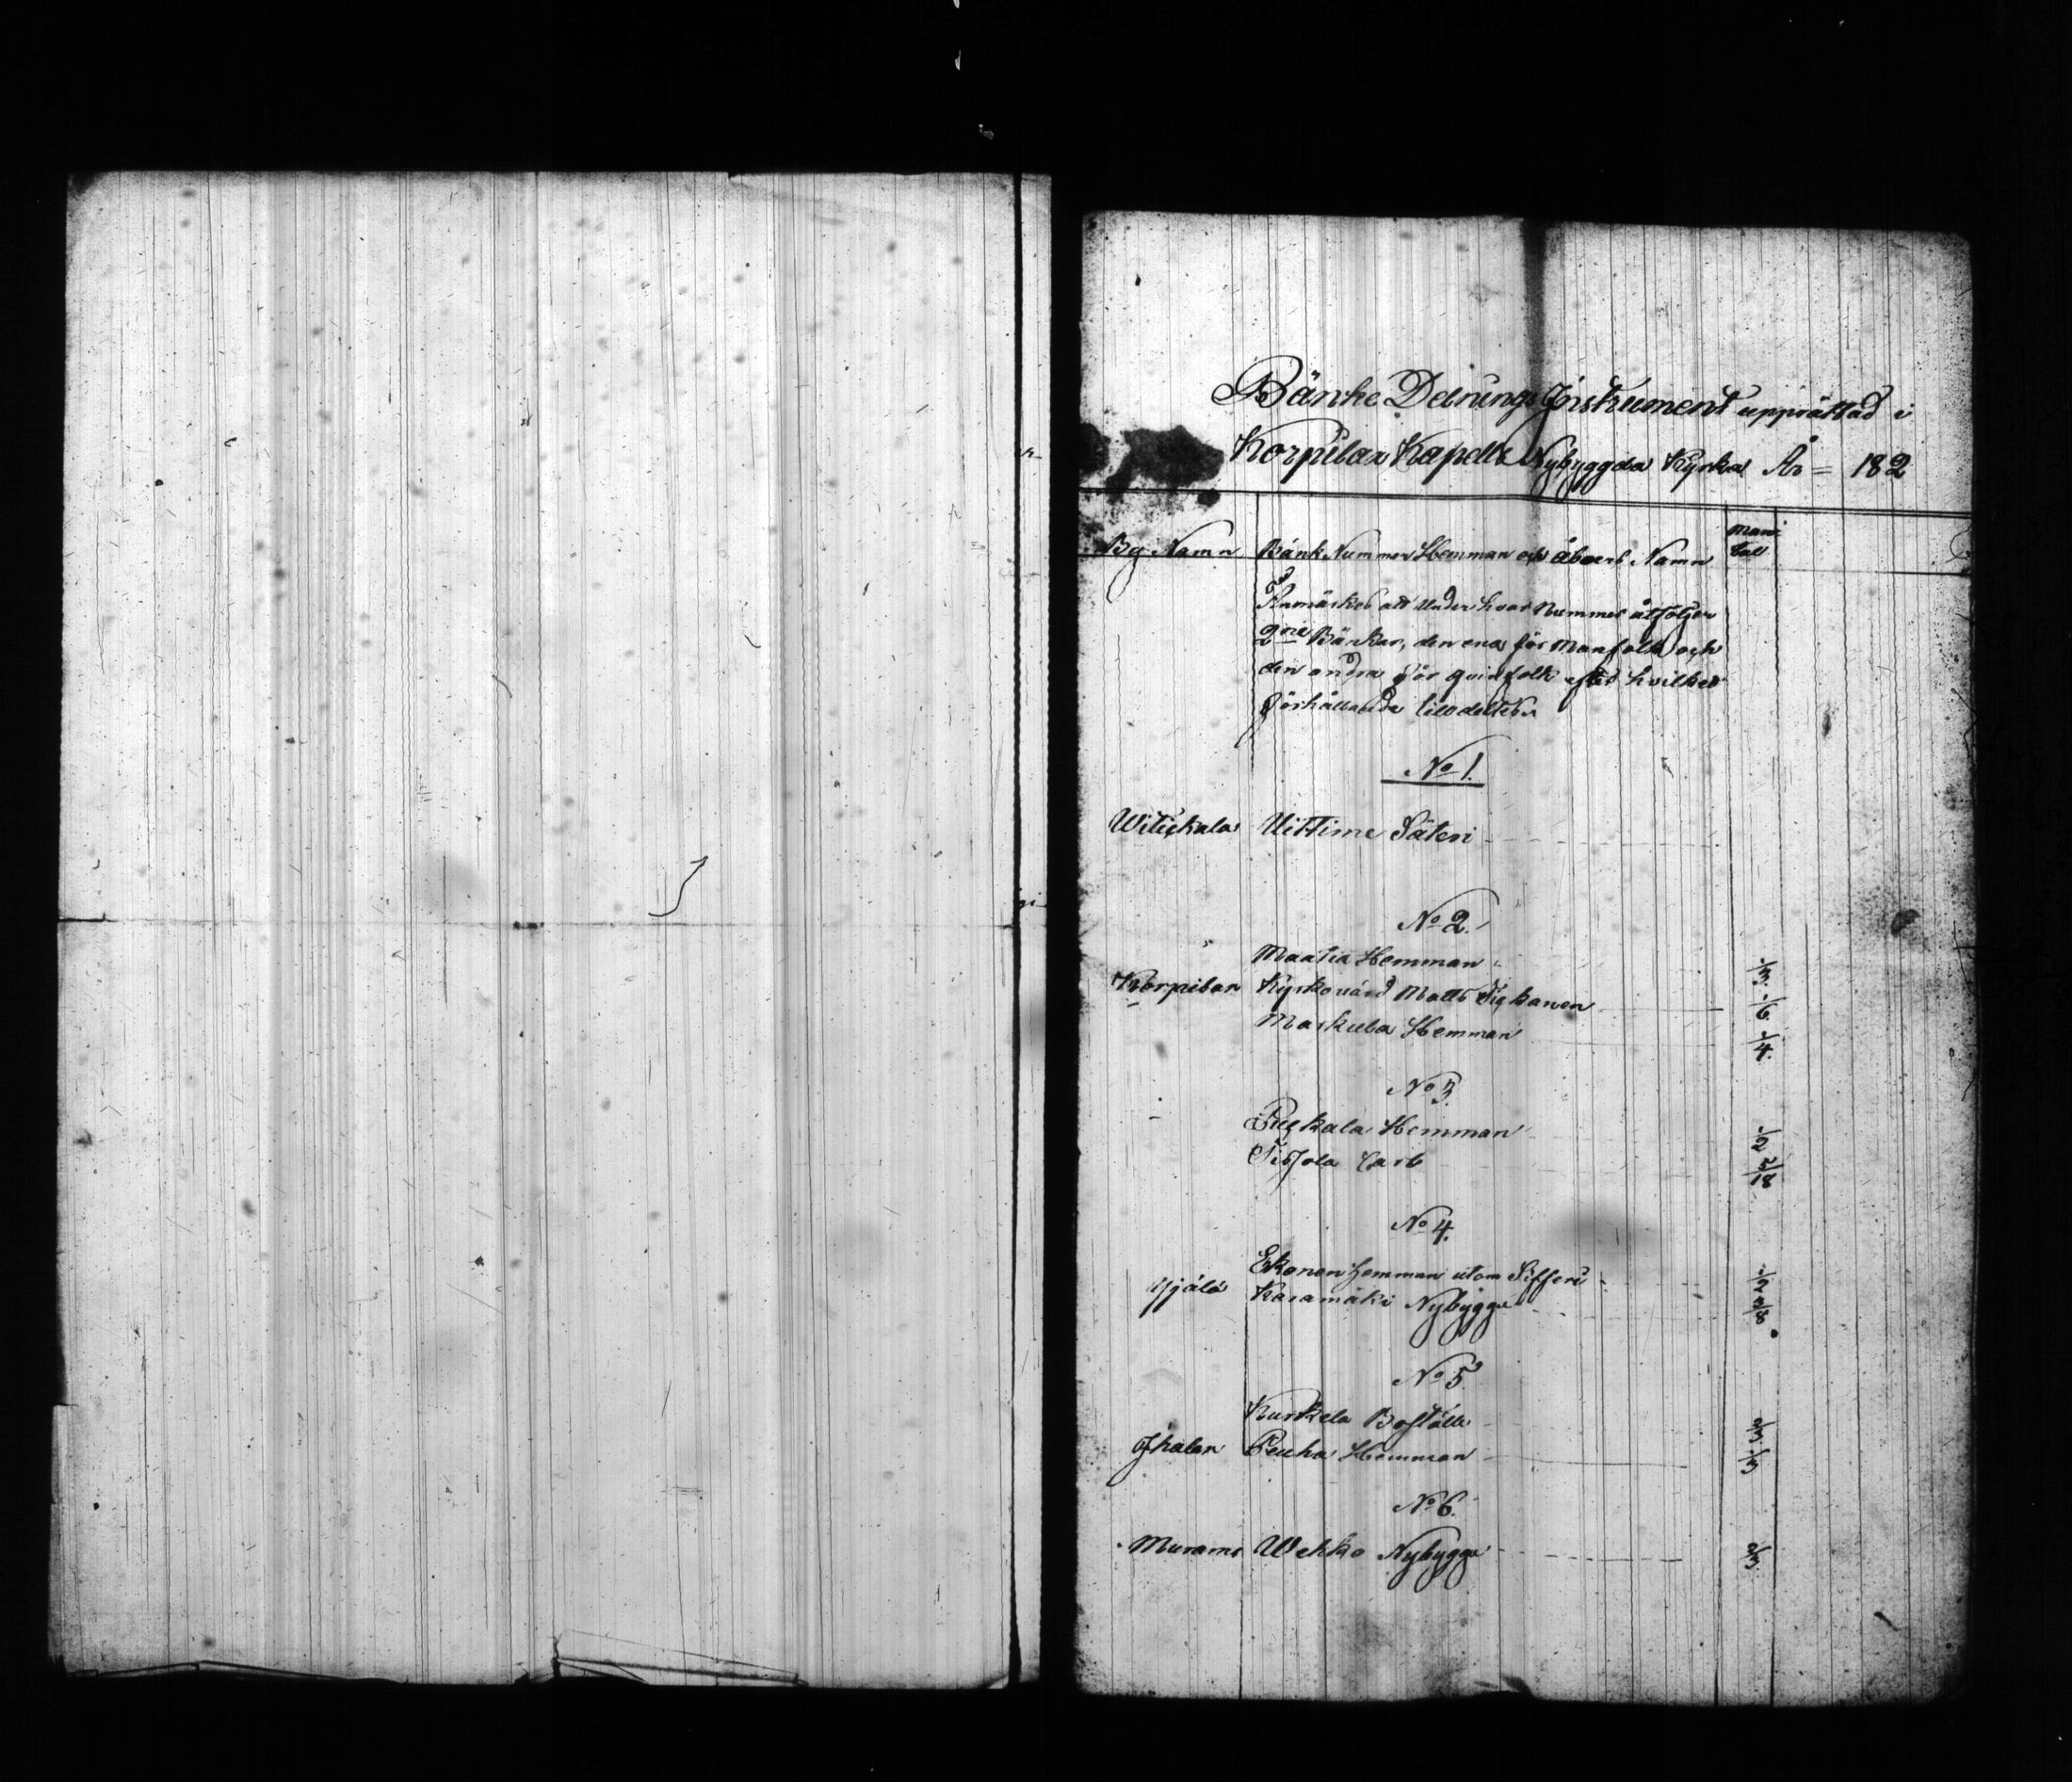 Bänke Delnings Instrument upprättad i
Korpilax Kapells Nybyggda Kyrka År = 182
By Namn Bänk Nummer Hemman och Åboers Namn Mantal
Anmärkes att under hvar Nummer åtföljer
2ne Bänkar, den ena för Manfolk och
den andra för qvinfolk efter hvilket
förhållande
No 1.
Witickala Uittime Säteri
No 2.
Maatia Hemman 1/3.
Korpilax Kyrkovärd Matts 1/6.
Markula Hemman 1/4.
No 3.
Puckala Hemman 1/2
Tissola Carl
No 4.
Ekonen Hemman utom Sifferi 1/2
Karamäki Nybygge 3/8
No 5.
Kurkela Boställe
Ihalax Peuha Hemman 1/3
No 6.
Murame Wehko Nybygge 2/3